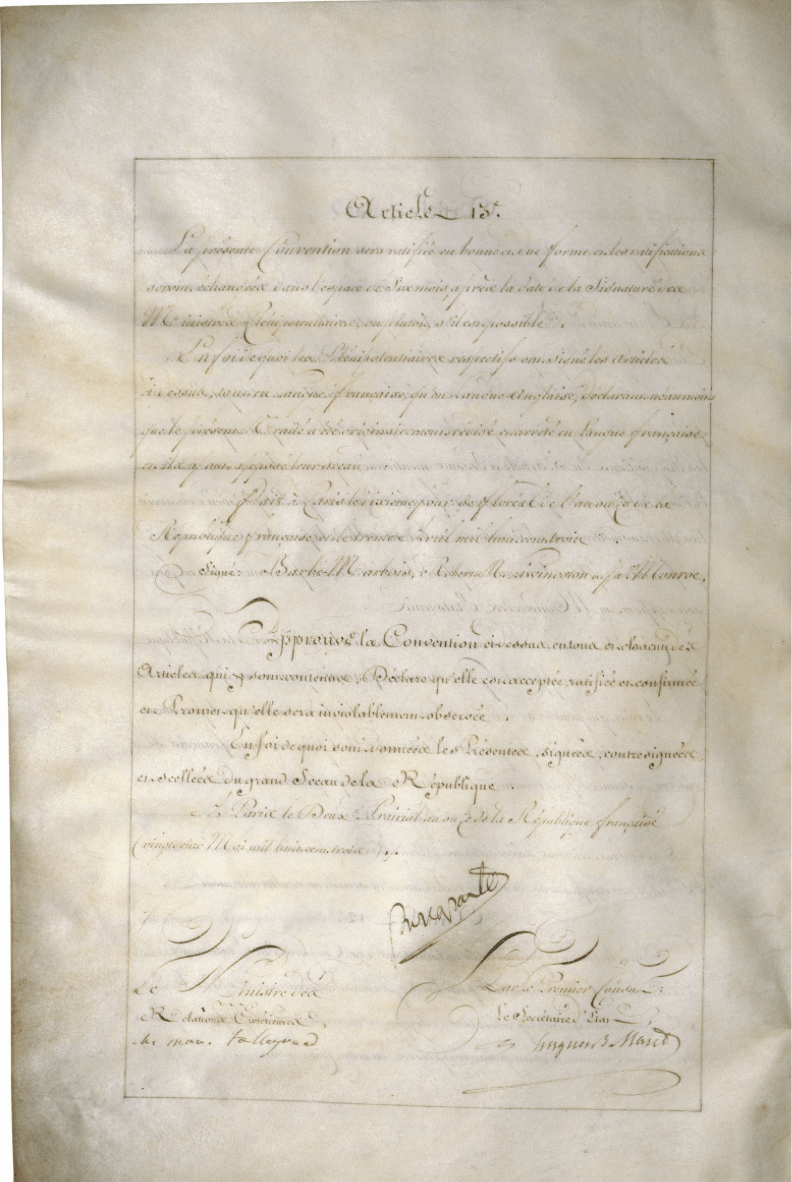 Article 13e.
La présente Convention sera ratifiée en bonne et due forme et les ratifications
seront échangées dans l'espace de Six mois, après la date de la Signature des
Ministres Plénipotentiaires, ou plutot, s'il est possible.
En foi de quoi les Plénipotentiaires respectifs ont signé les articles
ci dessus, tant en Langue française, qu'en Langue Anglaise, déclarant néanmoins
que le présent Traité a été originairement rédigé et arrêté en Langue française,
et ils y ont apposé leur Sceau
Fait à Paris le dixième jour de floréal de l'an onze de la
République française et le trente Avril mil huit cent trois.
Signé: Barbé-Marbois, Robert R. Livingston et Ja.s Monroe.
Approuve la Convention ci dessus en tous et chacun des
Articles qui y sont contenus; Déclare qu'elle est acceptée, ratifiée et confirmée
et Promet qu'elle sera inviolablement observée.
En foi de quoi sont données les Présentes, signées, contresignées
et scellées du grand Sceau de la République.
A Paris le Deux Prairial an onze de la République française
(vingt deux Mai mil huit cent trois).
Bonaparte
Le Ministre des
Par le Premier Consul:
Relations Extérieures,
Le Secrétaire d'Etat
ch. mau. talleyrand
hugues B. Maret